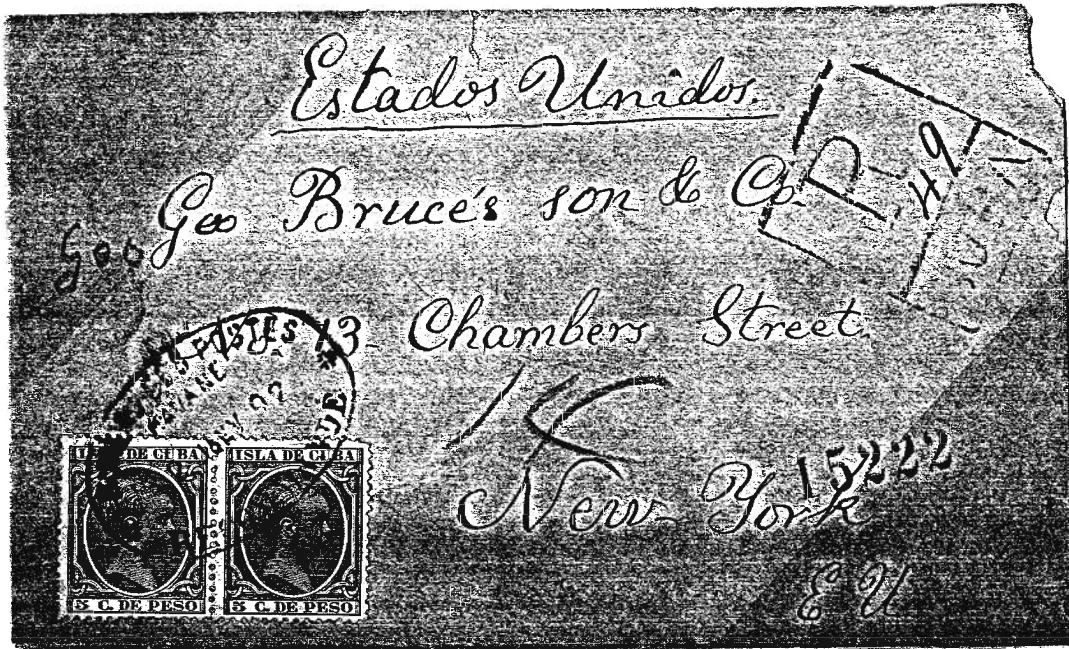 Estados Unidos.
R
No 49
Geo Bruce's son & Co.
Geo
13 Chambers Street.
New York
15222
E U
ISLA DE CUBA
ISLA DE CUBA
5 C. DE PESO
5 C. DE PESO